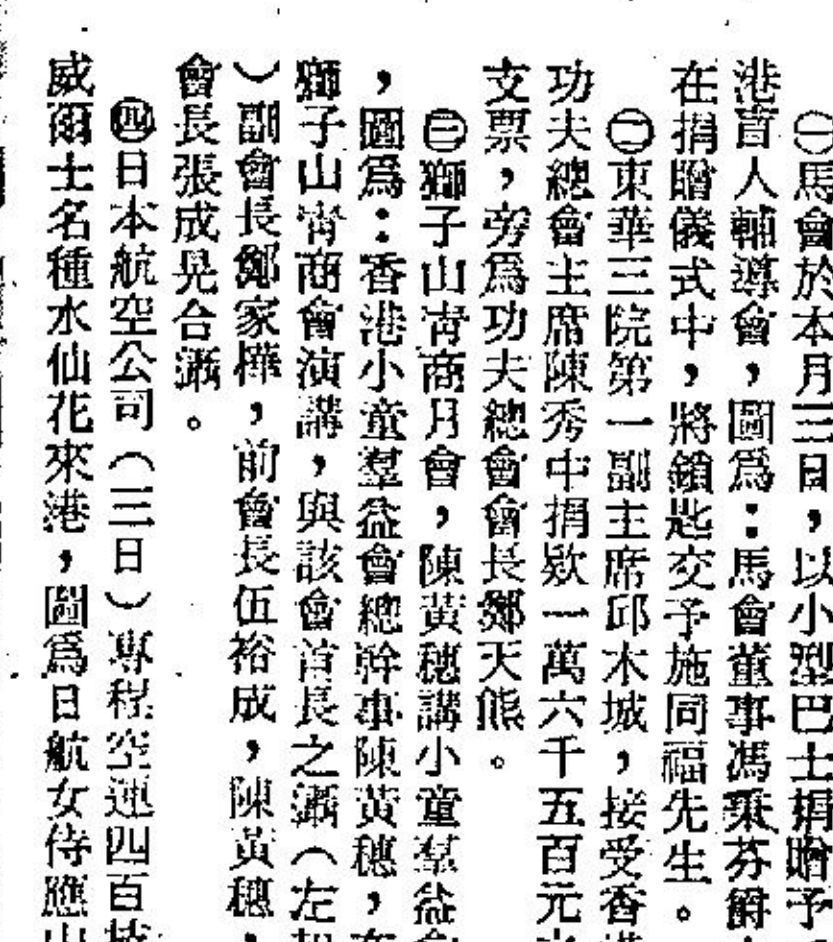 ㊀馬會於本月三日，以小型巴士捐贈予
港盲人輔導會，圖爲：馬會董事馮秉芬爵
在捐贈儀式中，將鎖匙交予施同福先生。
㊁東華三院第一副主席邱木城，接受香港
功夫總會主席陳秀中捐欵一萬六千五百元
支票，旁爲功夫總會會長鄭天熊。
㊂獅子山青商月會，陳黃穗講小童羣益會
，圖爲：香港小童羣益會總幹事陳黃穗，在
獅子山青商會演講，與該會首長之攝（左起
）副會長鄭家樺，前會長伍裕成，陳黃穗，
會長張成晃合攝。
㊃日本航空公司（三日）專程空運四百枝
威爾士名種水仙花來港，圖爲日航女侍應